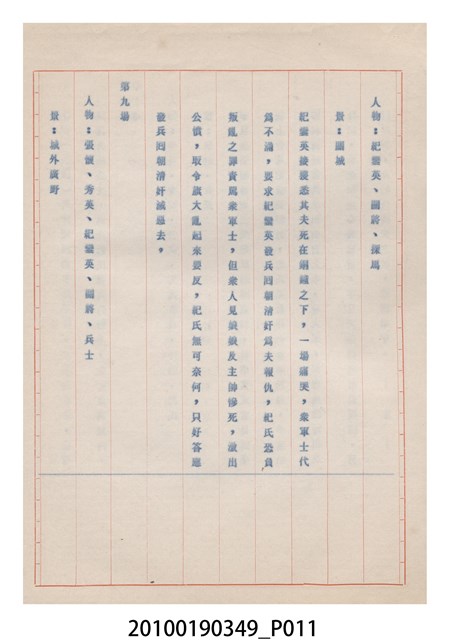 人物：紀鸞英、國將、探馬
景：關城
紀鸞英接獲悉其夫死在銅鍘之下，一場痛哭，衆軍士代
爲不滿，要求紀鸞英發兵囘朝清奸爲夫報仇，紀氏恐負
叛亂之罪責罵衆軍士，但衆人見娘娘及主帥慘死，激出
公憤，取令旗大亂起來要反，紀氏無可奈何，只好答應
發兵囘朝清奸滅惡去，
第九場
人物：張健、秀英、紀鸞英、國將、兵士
景：城外廣野
20100190349_P011